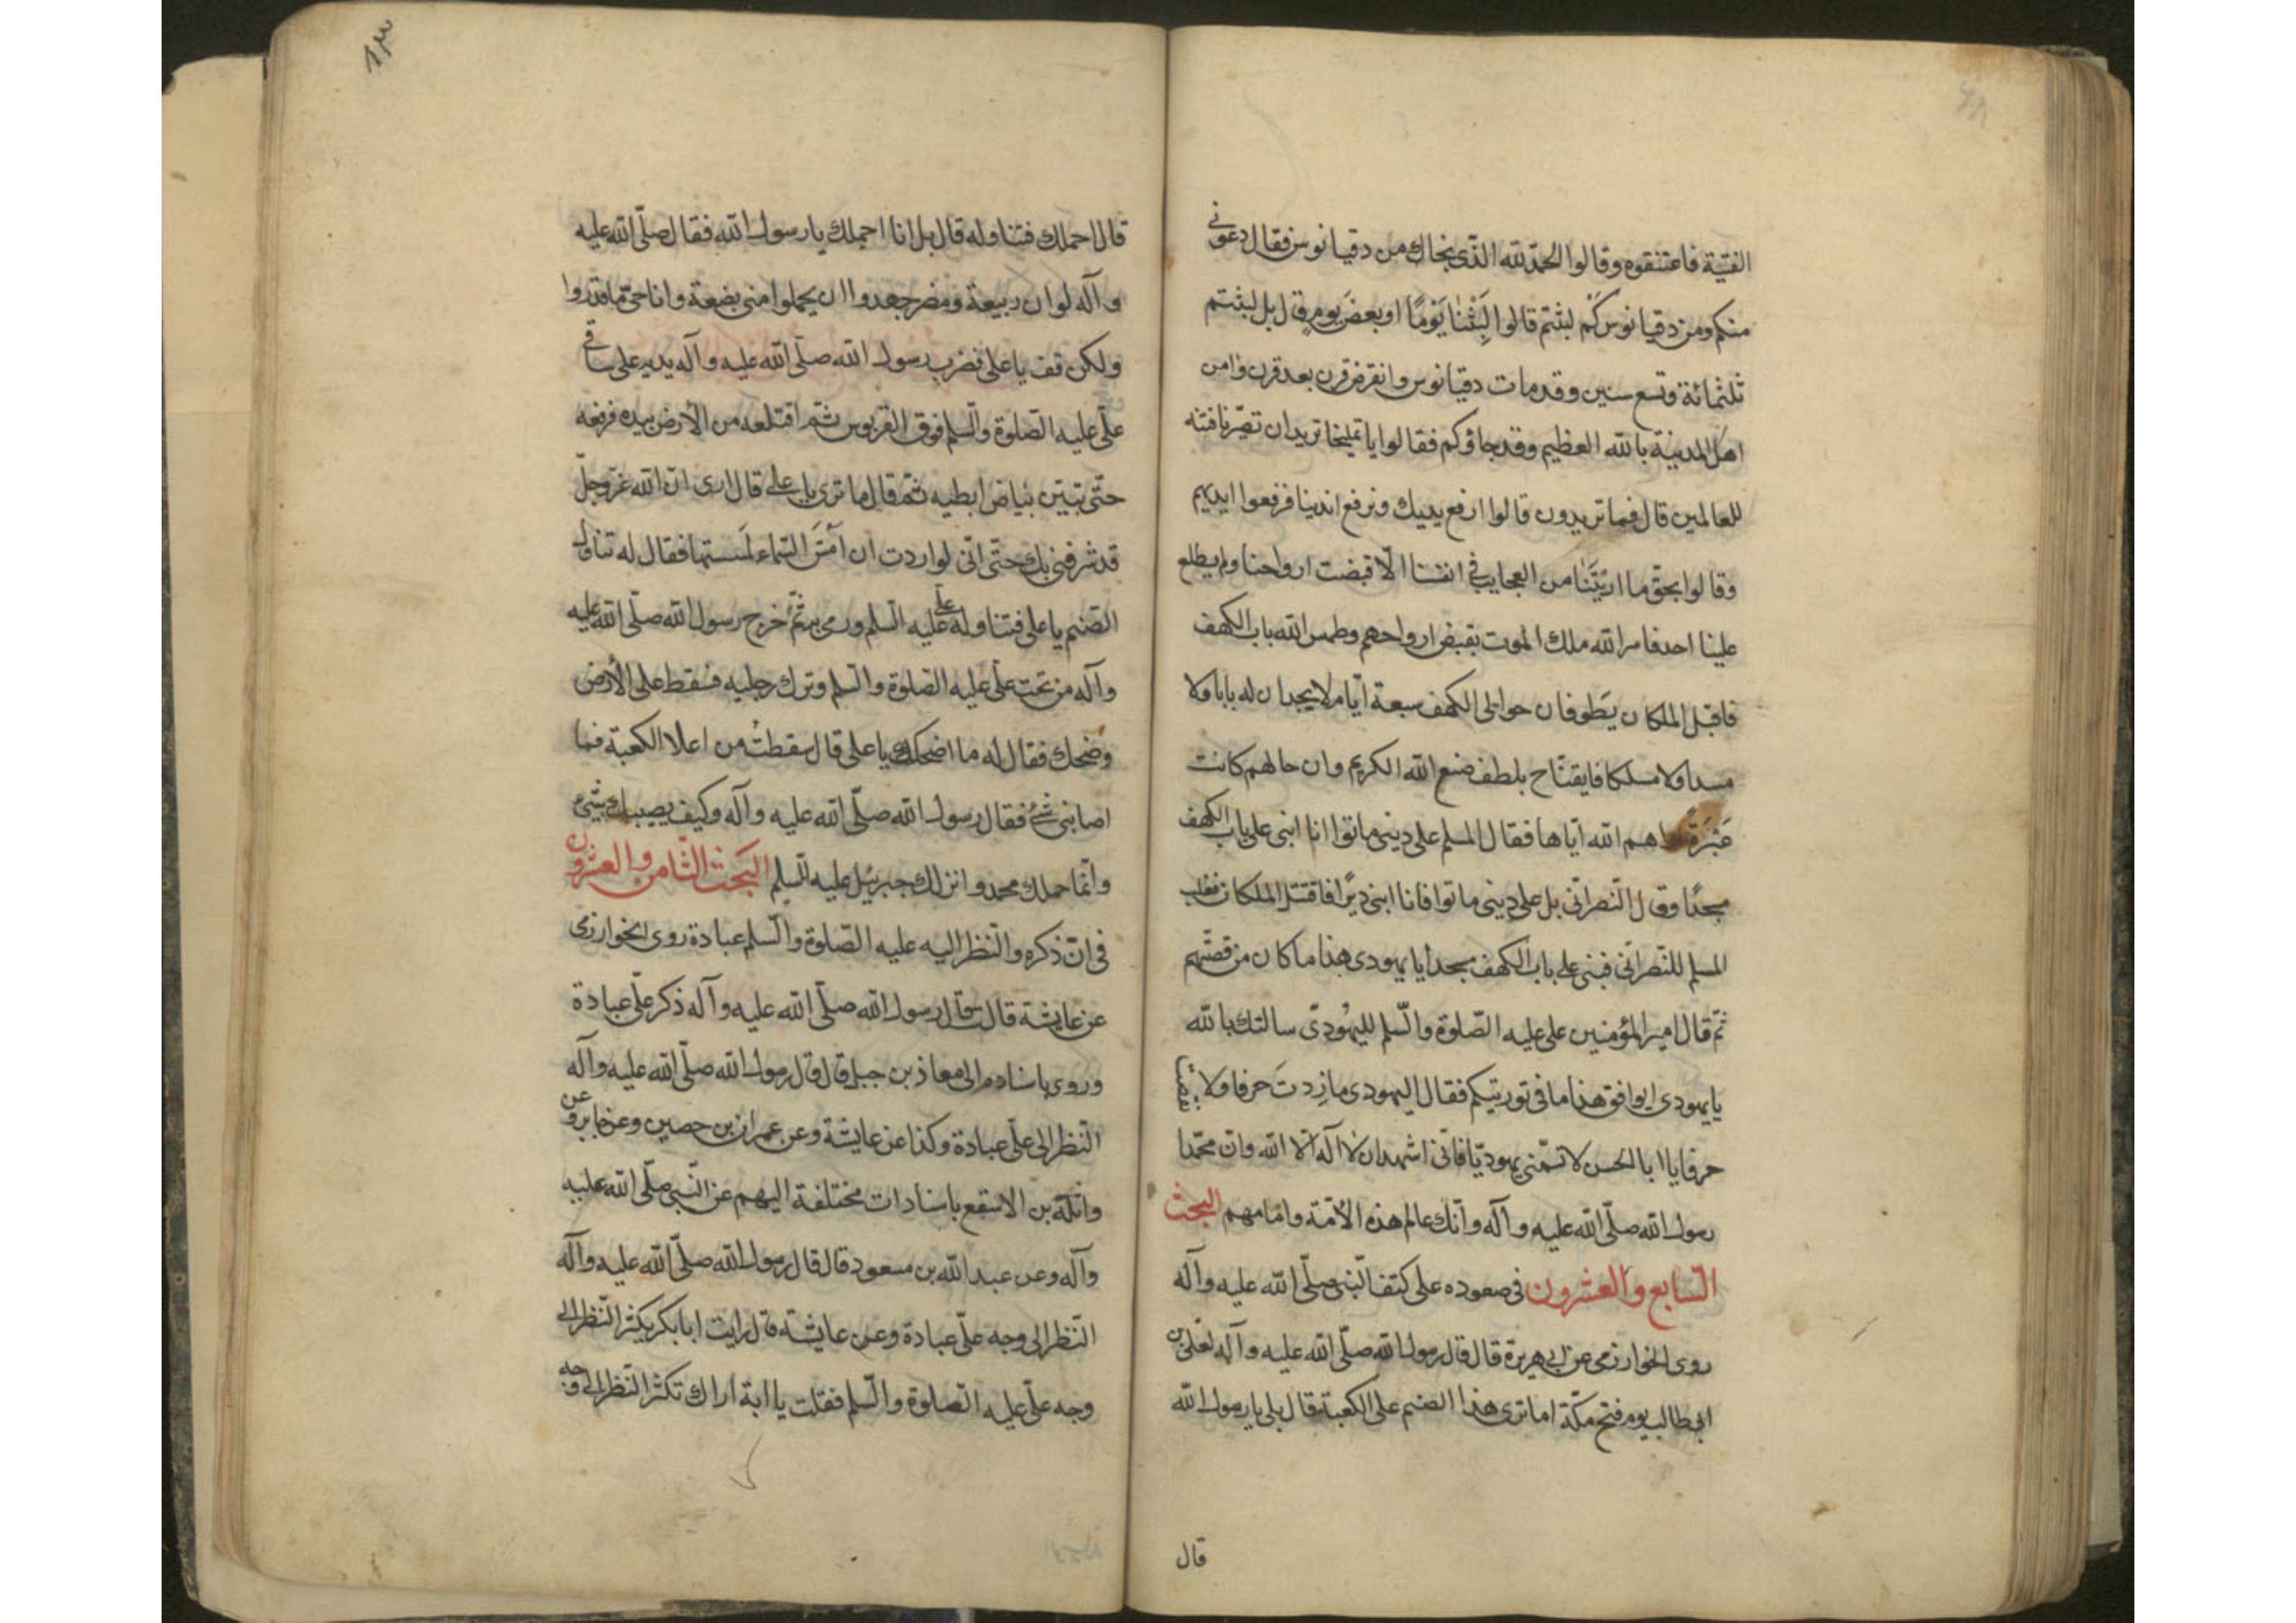 الفتية فاعتنقوه وقالوا الحمد لله الذى نجاك من دقيانوس فقال دعونى
منكم ومن دقيانوس كم لبثتم قالوا لبثنا يوما او بعض يوم قال بل لبثتم
ثلثمائة وتسع سنين وقد مات دقيانوس وانقرض قرن بعد قرن وامن
اهل المدينة بالله العظيم وقد جاؤكم فقالوا يا تمليخا تريد ان تصيرنا فتنه
للعالمين قال فما تريدون قالوا ارفع يديك ونرفع ايدينا فرفعوا ايديهم
وقالوا بحق ما اريتنا من العجايب فى انفسنا الّا قبضت ارواحنا ولم يطلع
علينا احد فامر الله ملك الموت بقبض ارواحهم وطمس الله باب الكهف
فاقبل الملكان يَطوفان حوالى الكهف سبعة ايّام لا يجدان له بابا ولا
مسدا ولا مسلكا فايقنا بلطف صنع الله الكريم وان حالهم كانت
عَبْرَة اراهم الله ايّاها فقال المسلم على دينى ماتوا انا ابنى على باب الكهف
مسجدًا وقال النّصرانى بل على دينى ماتوا فانا ابنى ديرًا فاقتتل الملكان فغلب
المسلم للنّصرانى فبنى على باب الكهف مسجدا يا يهودى هذا ما كان من قصتهم
ثم قال امير المؤمنين على عليه الصّلوة والسّلم لليهُودىّ سالتك بالله
يا يهودى ايوافق هذا ما فى توريتكم فقال اليهودى ما زِدتَ حرفا ولا نقصت
حرفا يا ابا الحسن لا تسمّنى يهوديّا فانّى اشهد ان لا اله الّا الله وانّ محمّدا
رسول الله صلّى الله عليه وآله وانّك عالم هذه الأمّة وامامهم البحث
السّابع والعشرون فى صعوده على كتف النّبى صلّى الله عليه وآله
روى الخوارزمى عن ابى هريرة قال قال رسول الله صلّى الله عليه وآله لعلى بن
ابى طالب يوم فتح مكّة اما ترى هذا الصنم على الكعبة قال بلى يا رسول الله
قال
٨٣
قال احملك فتناوله قال بل انا احملك يا رسول الله فقال صلّى الله عليه
وآله لو ان ربيعة ومضر جهدوا ان يحملوا منى بضعة وانا حىّ ما قدروا
ولكن قف يا على فضرب رسول الله صلّى الله عليه وآله يديه على ساقى
علّى عليه الصّلوة والسّلم فوق القربوس ثم اقتلعه من الأرض بيده فرفعه
حتّى تبيّن بياض ابطيه ثم قال ما ترى يا على قال ارى انّ الله عزّ وجلّ
قد شرفنى بك حتّى انّى لو اردت ان امسّ السّماء لمسستها فقال له تناول
الصّنم يا على فتناوله علىّ عليه السّلم ورمى به ثمّ خرج رسول الله صلّى الله عليه
وآله من تحت علّى عليه الصّلوة والسّلم وترك رجليه فسقط على الأرض
وضحك فقال له ما اضحكك يا على قال سقطتُ من اعلا الكعبة فما
اصابنى شئ فقال رسول الله صلّى الله عليه وآله وكيف يصيبك شئ
وانّما حملك محمد وانزلك جبرئيل عليه السّلم البَحث الثّامن والعشرون
فى انّ ذكره والنّظر اليه عليه الصّلوة والسّلم عبادة روى الخوارزمى
عن عايشة قالت قال رسول الله صلّى الله عليه وآله ذكر علّى عبادة
وروى باسناده الى معاذ بن جبل قال قال رسول الله صلّى الله عليه وآله
النّظر الى علّى عبادة وكذا عن عايشة وعن عمران بن حصين وعن جابر وعن
واثلة بن الاسقع باسنادات مختلفة اليهم عن النّبى صلّى الله عليه
وآله وعن عبد الله بن مسعود قال قال رسول الله صلّى الله عليه وآله
النّظر الى وجه علّى عبادة وعن عايشة قال رايت ابا بكر يكثر النّظر الى
وجه علّى عليه الصّلوة والسّلم فقلت يا ابة اراك تكثر النّظر الى وجه